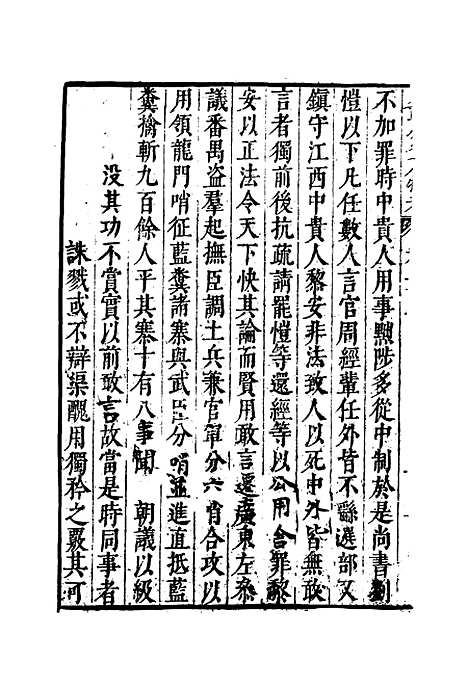 不加罪時中貴人用事黜陟多從中制於是尚書劉
愷以下凡任數人言官周經輩任外皆不繇選部又
鎮守江西中貴人黎安非法致人以死中外皆無敢
言者獨前後抗疏請罷愷等還經等以公用合罪黎
安以正法令天下快其論而賢用敢言遷廣東左叅
議番禺盗羣起撫臣調土兵兼官軍分六哨合攻以
用領龍門哨征藍糞諸寨與武臣分哨並進直抵藍
糞擒斬九百餘人平其寨十有八事聞 朝議以級
没其功不賞實以前敢言故當是時同事者
誅戮或不辯渠醜用獨矜之覈其可